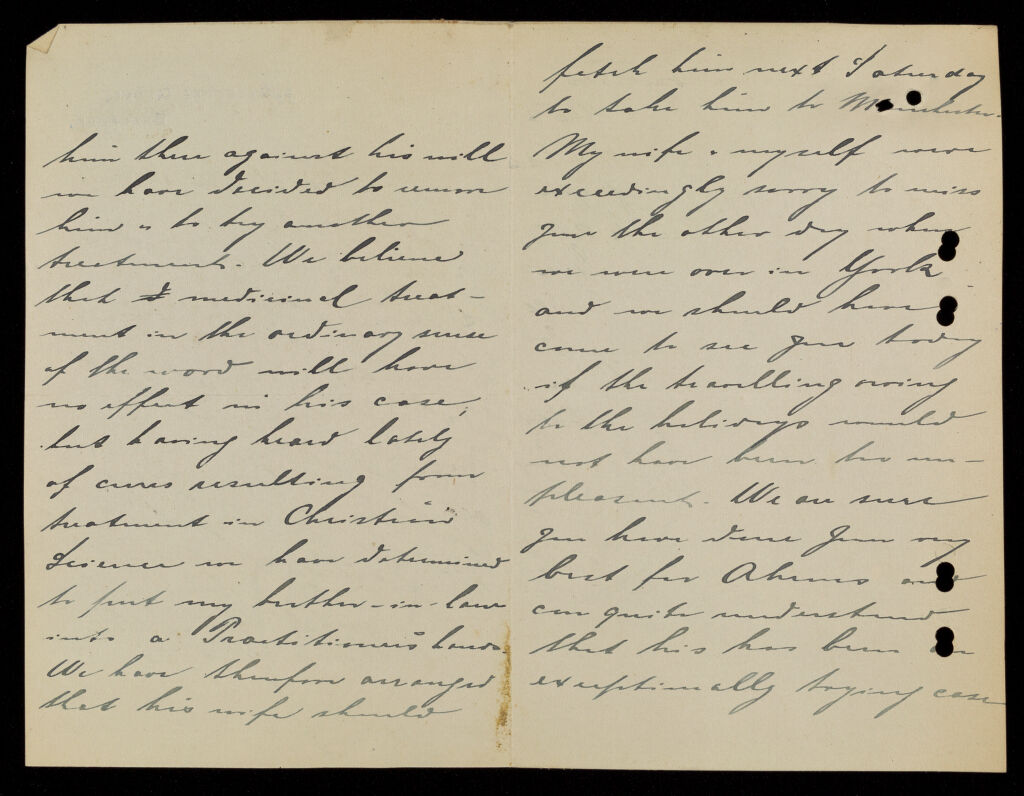 him there against his will
we have decided to remove
him & to try another
treatment. We believe
that medicinal treat-
ment in the ordinary sense
of the word will have
no effect in his case,
but having heard lately
of cures resulting from
treatment in Christian
Science we have determined
to put my brother-in-law
into a Practitioner's hands.
We have therefore arranged
that his wife should
fetch him next Saturday
to take him to Manchester.
My wife & myself were
exceedingly sorry to miss
you the other day when
we were over in York
and we should have
come to see you today
if the travelling owing
to the holidays would
not have been too un-
pleasant. We are sure
you have done your very
best for and
can quite understand
that his has been an
exceptionally trying case